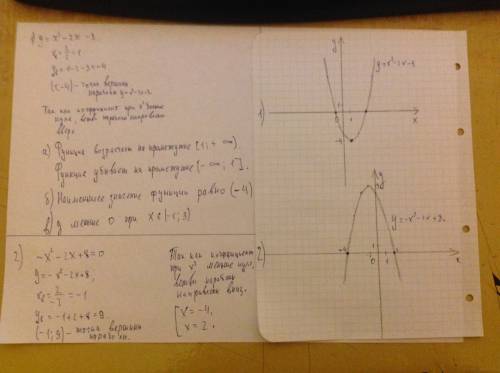 1) y = x² - 2x - 3
x₀ = 2/2 = 1
y₀ = 1 - 2 - 3 = -4
(1; -4) - точка вершины
параболы y = x² - 2x - 3.
Так как коэффициент при x² больше
нуля, ветви параболы направлены
вверх.
а) Функция возрастает на промежутке [1; + ∞).
Функция убывает на промежутке
[-∞; 1].
б) Наименьшее значение функции равно (-4)
в) y меньше 0 при x ∈ (-1; 3)
2) -x² - 2x + 8 = 0
y = -x² - 2x + 8,
x₀ = 2/-2 = -1
y₀ = -1 + 2 + 8 = 9
(-1; 9) - точка вершины
параболы.
Так как коэффициент
при x² меньше нуля,
ветви параболы
направлены вниз.
x = -4,
x = 2.
1)
y
y = x² - 2x - 3
0
1
x
-4
2)
y
y = -x² - 2x + 8.
-4
-2
0
1
x